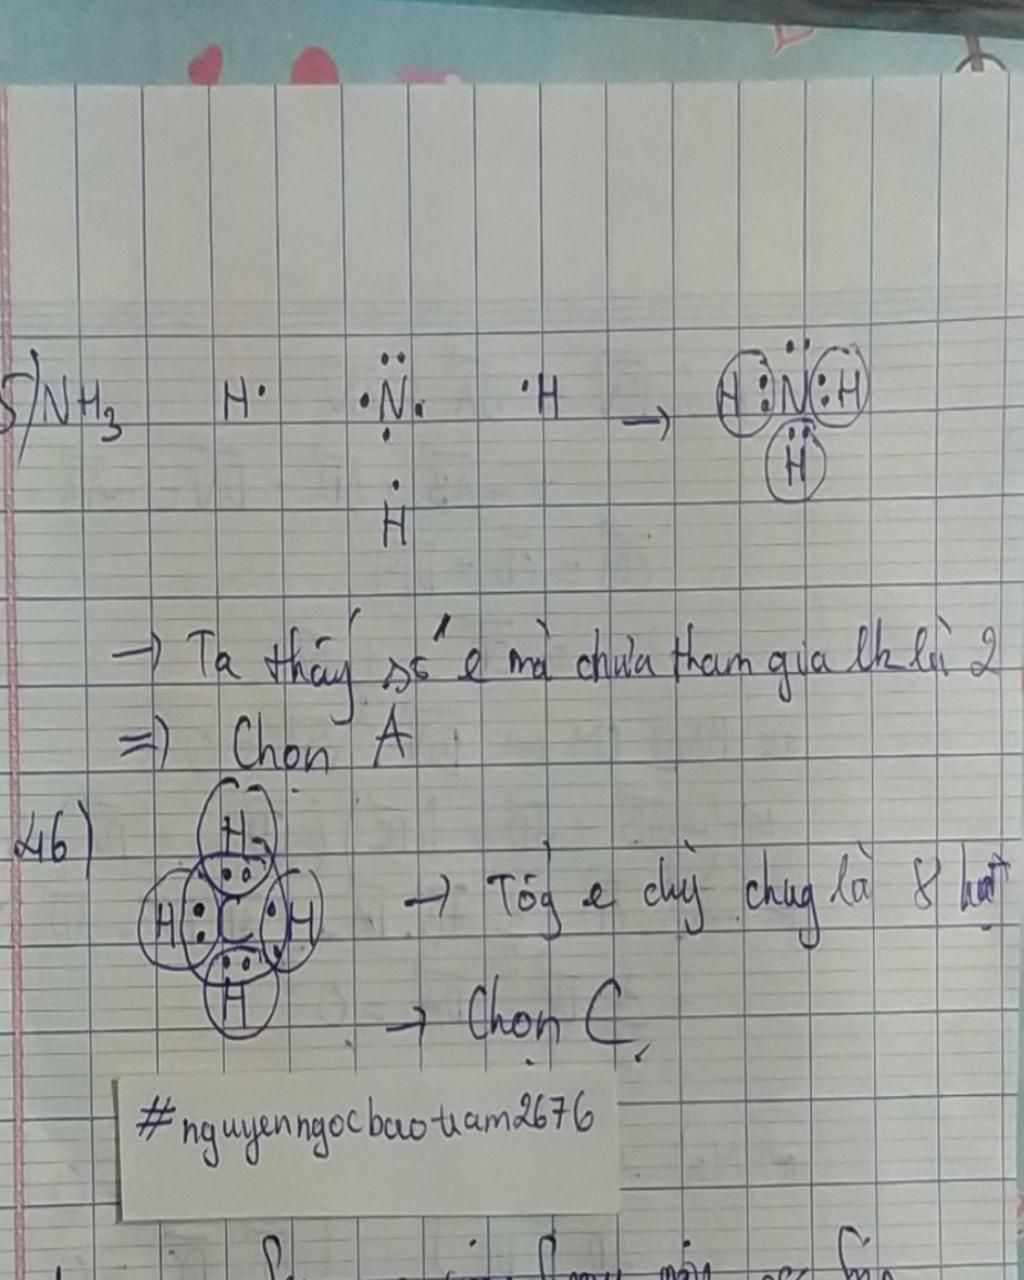 5) NH3 H· ·N· ·H → H:N:H
H
H
→ Ta thấy số e mà chưa tham gia lk là 2
=> Chọn A
46) H
H:C:H → Tổg e chug là 8 hạt
H
→ Chọn C
#nguyenngocbaotram2676